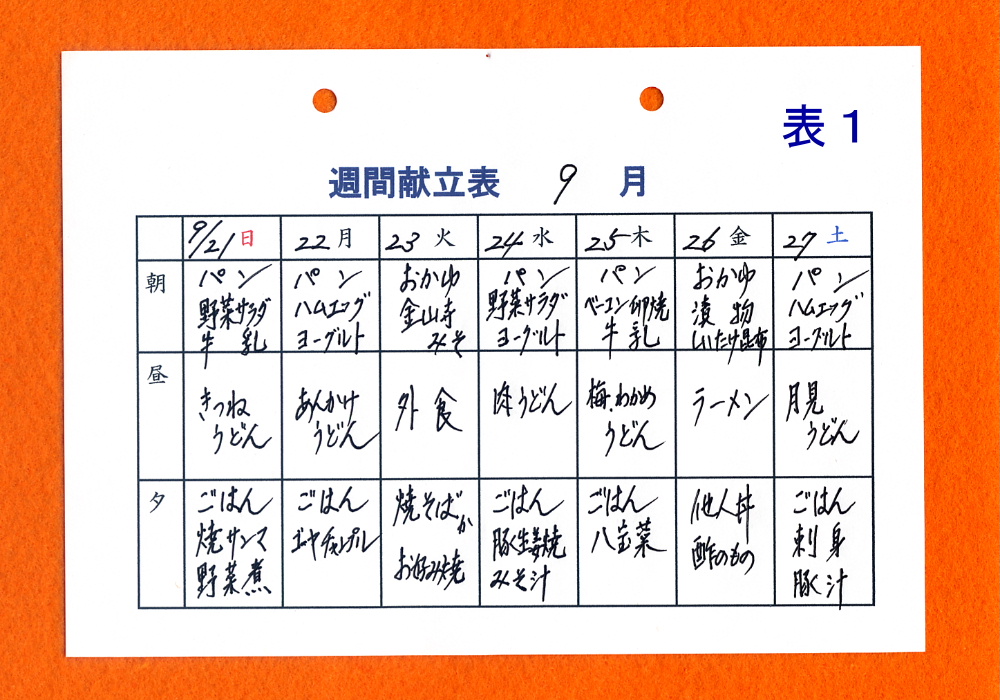 表1
週間献立表 9 月
9/21 日 22 月 23 火 24 水 25 木 26 金 27 土
朝
パン
野菜サラダ
牛乳
パン
ハムエッグ
ヨーグルト
おかゆ
金山寺
みそ
パン
野菜サラダ
ヨーグルト
パン
ベーコン卵焼
牛乳
おかゆ
漬物
しいたけ昆布
パン
ハムエッグ
ヨーグルト
昼
きつね
うどん
あんかけ
うどん
外食
肉うどん
梅、わかめ
うどん
ラーメン
月見
うどん
夕
ごはん
焼サンマ
野菜煮
ごはん
ゴーヤチャンプル
焼そばか
お好み焼
ごはん
豚生姜焼
みそ汁
ごはん
八宝菜
他人丼
酢のもの
ごはん
刺身
豚汁